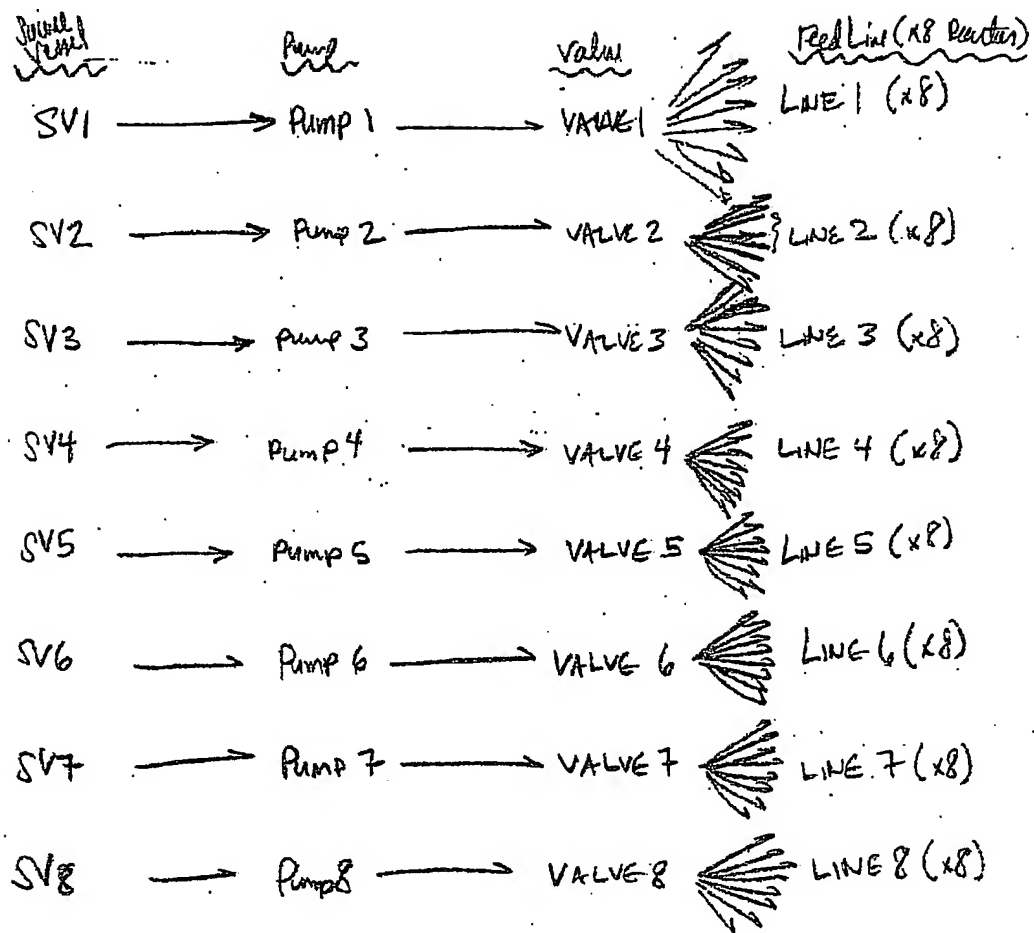 Source Vessel Pump Valve Feed Line (x8 Reactors)
SV1 Pump 1 VALVE 1 LINE 1 (x8)
SV2 Pump 2 VALVE 2 LINE 2 (x8)
SV3 Pump 3 VALVE 3 LINE 3 (x8)
SV4 Pump 4 VALVE 4 LINE 4 (x8)
SV5 Pump 5 VALVE 5 LINE 5 (x8)
SV6 Pump 6 VALVE 6 LINE 6 (x8)
SV7 Pump 7 VALVE 7 LINE 7 (x8)
SV8 Pump 8 VALVE 8 LINE 8 (x8)